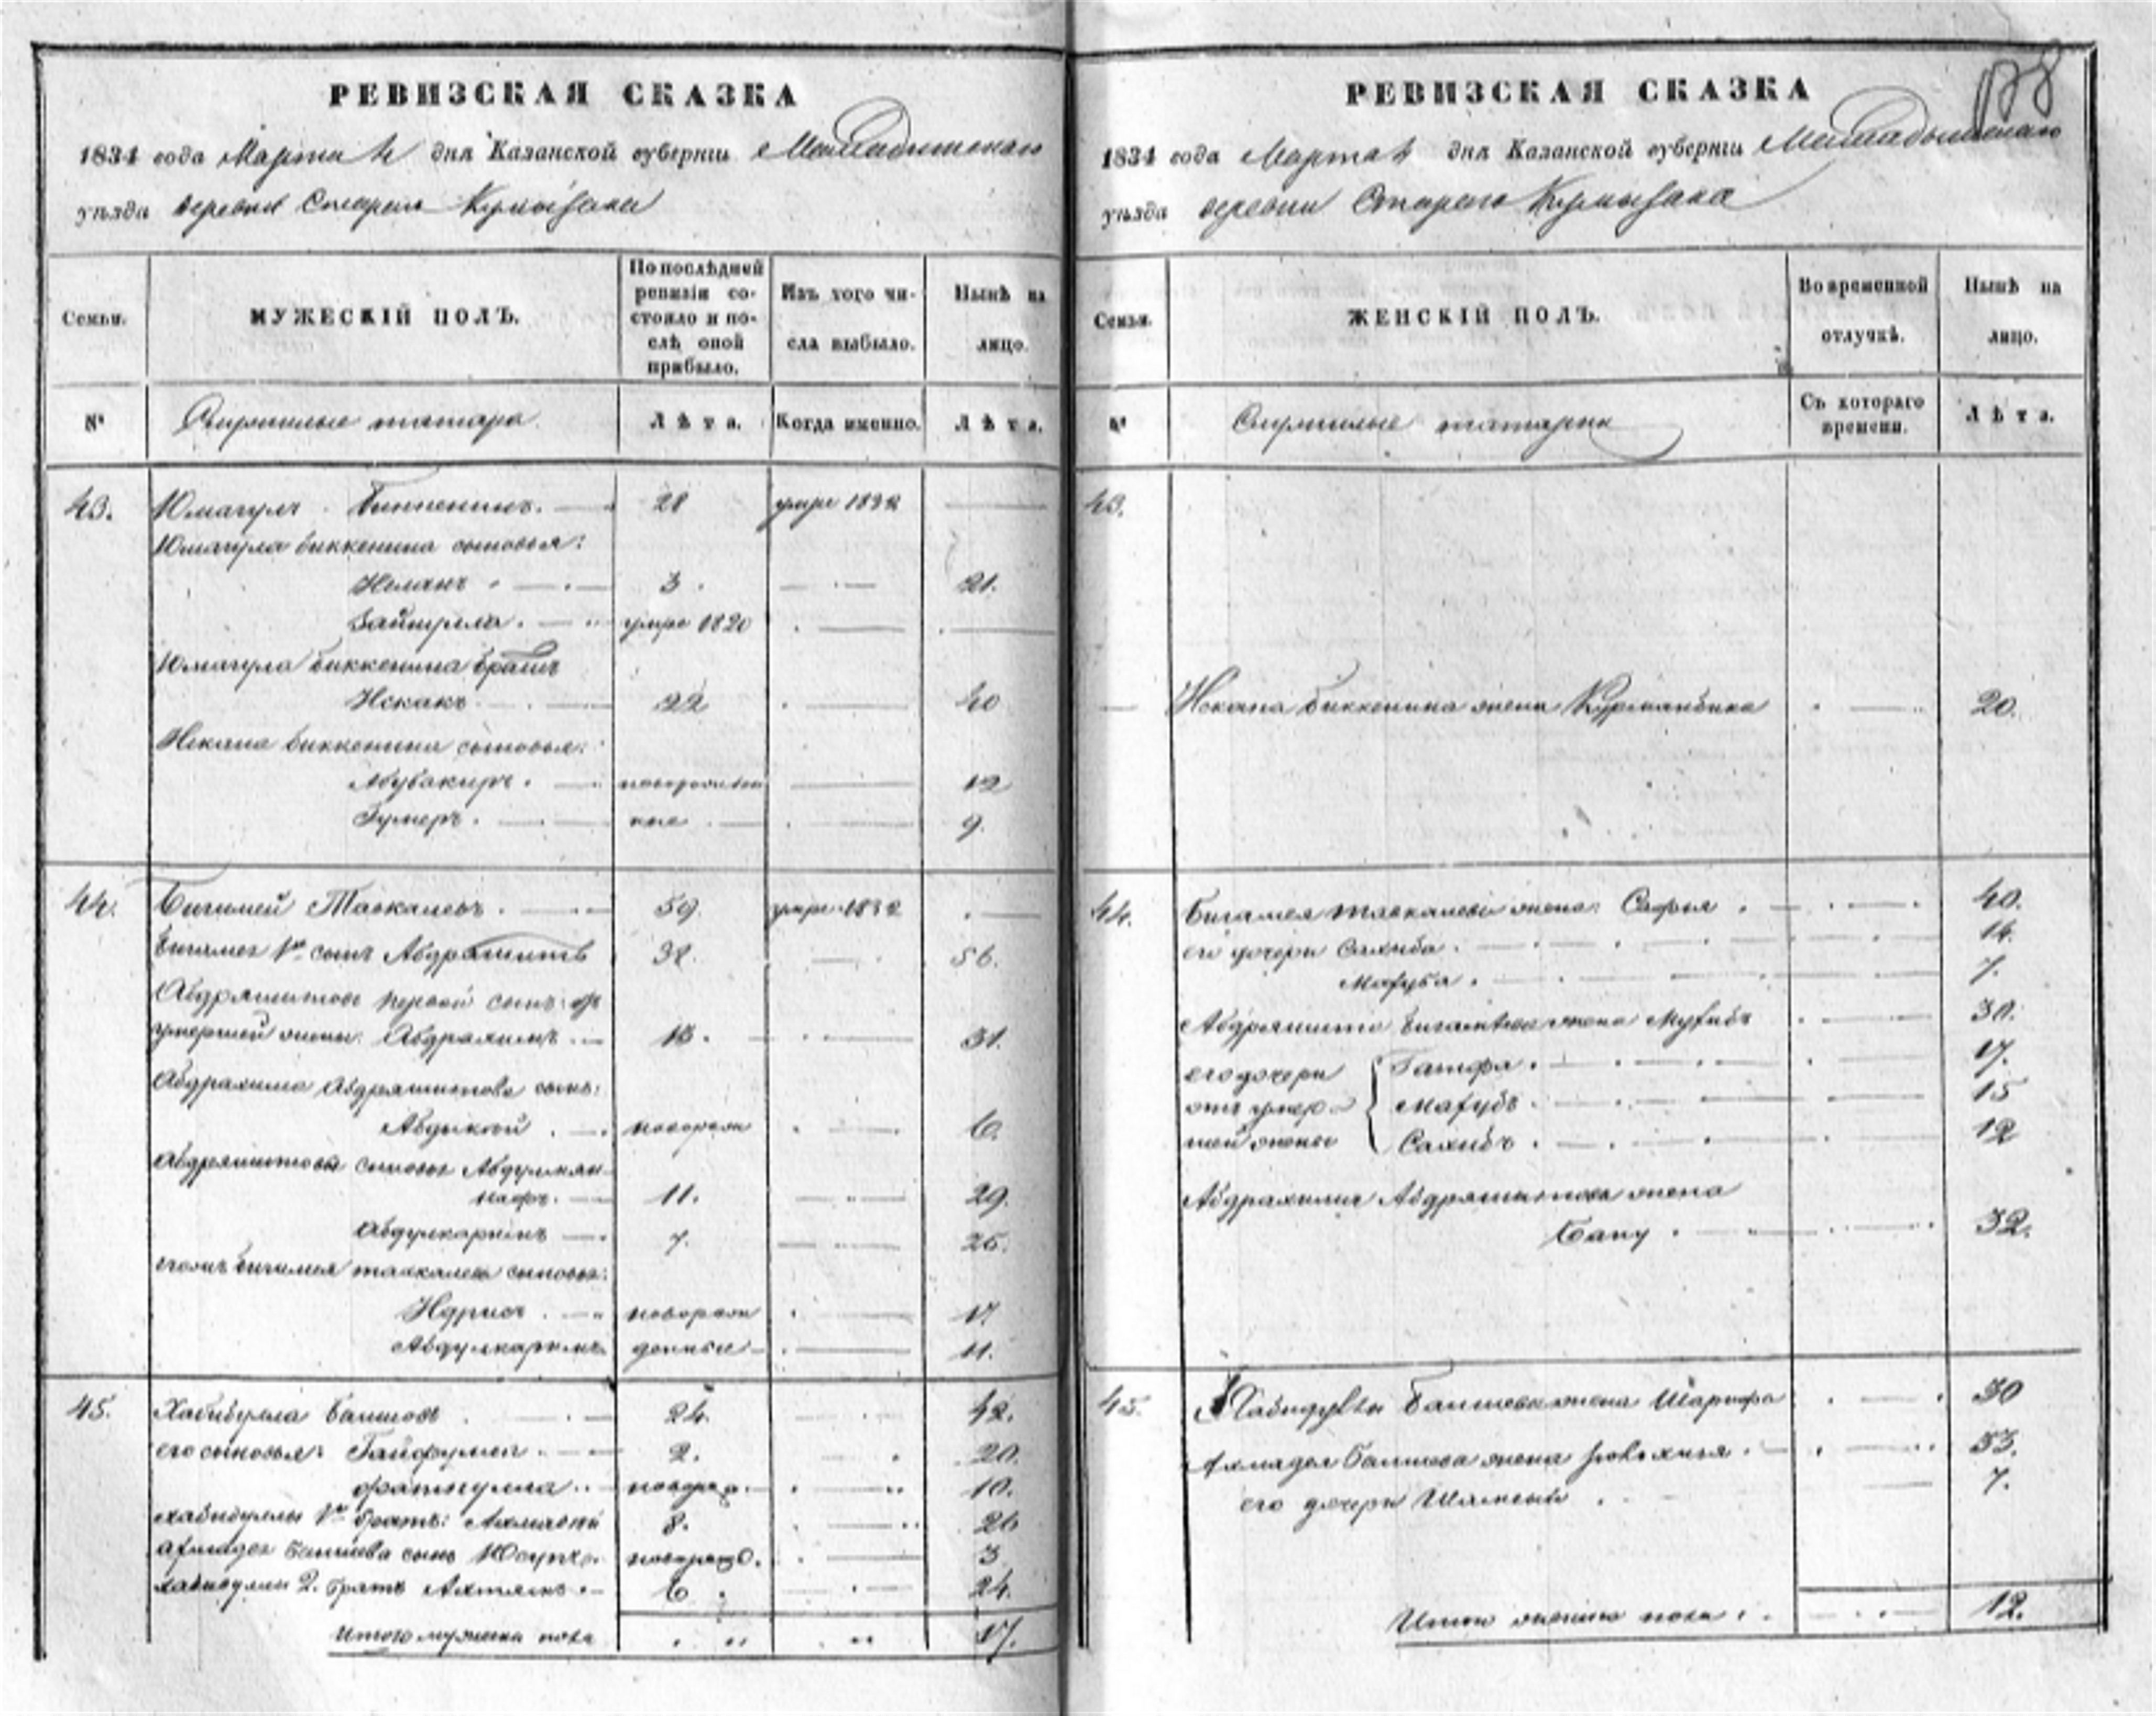 РЕВИЗСКАЯ СКАЗКА
1834 года Марта дня Казанской губернии Мамадышскаго
уѣзда деревни Старого Кумызана
Семьи.
МУЖЕСКІЙ ПОЛЪ.
По послѣдней ревизіи состояло и послѣ оной прибыло.
Изъ того числа выбыло.
Нынѣ на лицо.
№
Служилые татара
Лѣта.
Когда именно.
Лѣта.
43. Юмагулъ Биккенинъ. 28 умре 1832
Юмагула Биккенина сыновья:
3 21.
умре 1820
Юмагула Биккенина братъ
Искакъ 22 40
Искака Биккенина сыновья:
Абубакиръ. новорожден 12
Гумеръ. ные 9.
44. Бигимей Таскаевъ 59 умре 1832
Бигимея 1й сынъ Абдряшитъ 38. 56.
Абдряшитова первой сынъ от
умершей жены: Абдрахимъ 13. 31.
Абдрахима Абдряшитова сынъ:
новорожд 6.
Абдряшитова сыновья Абдулжан
нафъ. 11. 29.
Абдулкаримъ 7. 25.
его жъ Бигимея сыновья:
Идрисъ новорож 17
Абдулкаримъ денные 11.
45. Хабибулла Баишовъ 24. 42.
его сыновья: Гайфулла 2. 20.
Фатхулла новорож. 10.
Хабибуллы 1й братъ: Ахмадей 8. 26
Ахмадея Баишева сынъ Юсупъ новорожд. 3
Хабибуллы 2. братъ Ахтямъ 6. 24.
Итого мужеска пола 17.
РЕВИЗСКАЯ СКАЗКА
1834 года Марта дня Казанской губерніи Мамадышскаго
уѣзда деревни Старого Кумызана
Семьи.
ЖЕНСКІЙ ПОЛЪ.
Во временной отлучкѣ.
Нынѣ на лицо.
№
Служилые татарки
Съ котораго времени.
Лѣта.
43.
Искака Биккенина жена Курманбика 20.
44. Бигимея жена: Сафья 40.
его дочери Сахиба. 14.
Мафуба. 7.
Абдряшита Бигимеева жена 30.
его дочери Гатифа. 17.
отъ умер- Мафубъ 15
шей жены Сахибъ 12
Абдрахима Абдряшитова жена
Бану 32.
45. Хабибуллы Баишева жена Шарифа 30
Ахмадея Баишева жена 33.
его дочери 7.
Итого женска пола 12.